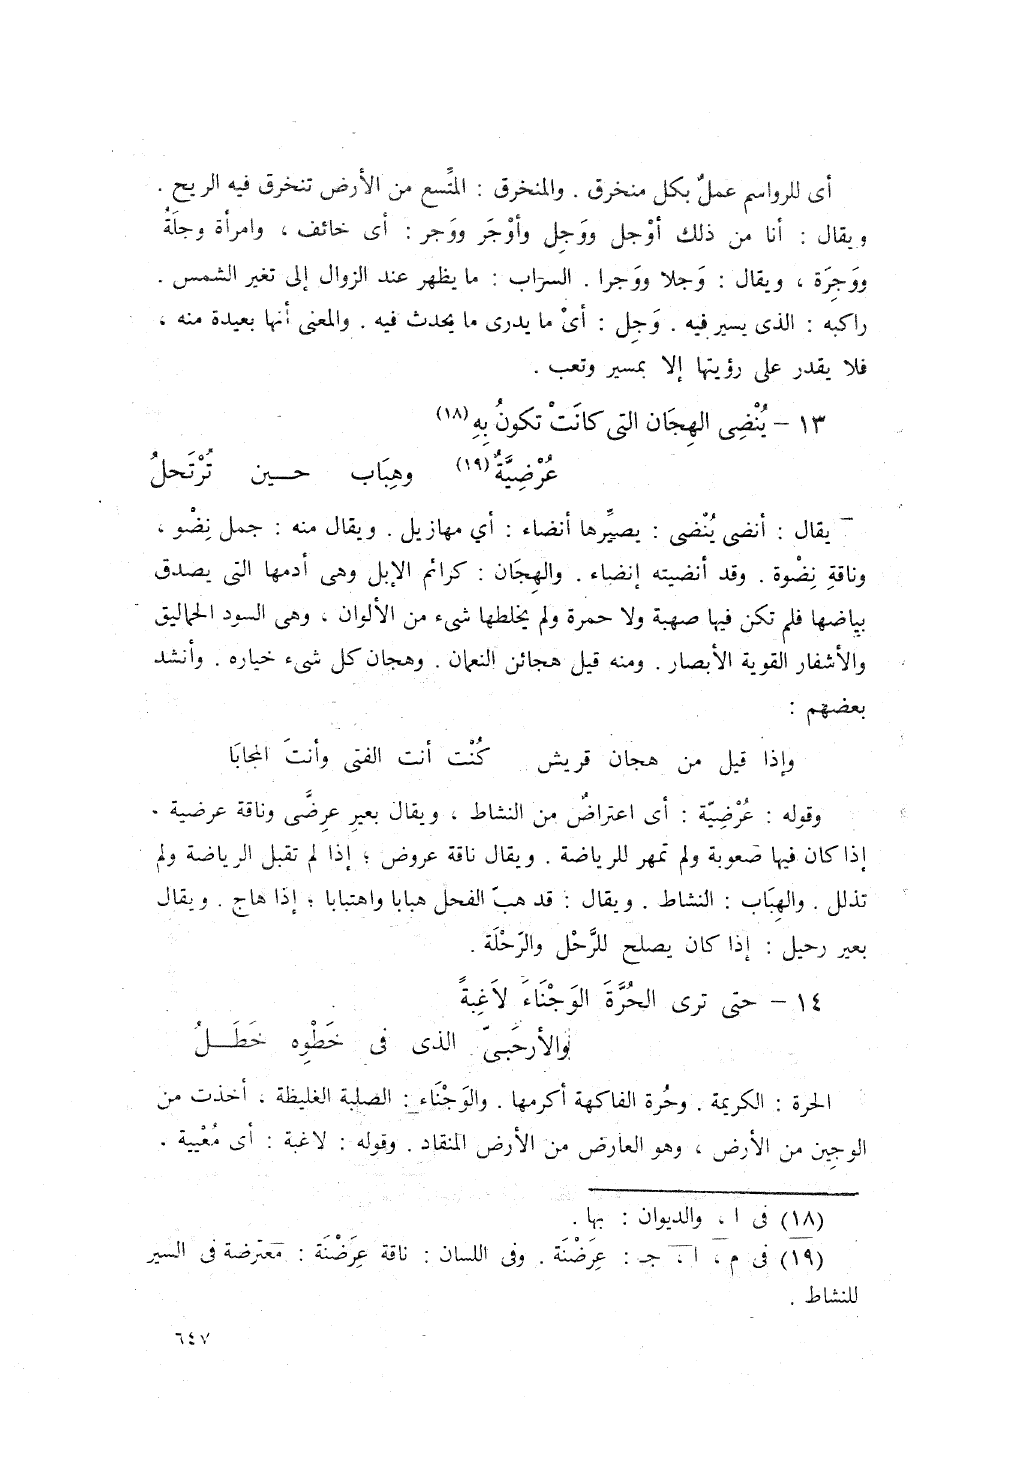 أى للرواسم عملٌ بكل منخرق . والمنخرق : المتَّسع من الأرض تنخرق فيه الريح .
ويقال : أنا من ذلك أوْجل ووَجِل وأوْجَر ووَجر : أى خائف ، وامرأة وجلَةُ
ووَجِرَة ، ويقال : وَجلا ووَجرا . السرَاب : ما يظهر عند الزوال إلى تغير الشمس .
راكبه : الذى يسير فيه . وَجِل : أىْ ما يدرى ما يحدث فيه . والمعنى أنها بعيدة منه ،
فلا يقدر على رؤيتها إلا بمسير وتعب .
١٣ – يُنْضِى الهِجَان التى كانَتْ تكونُ بِهِ (١٨)
عُرْضِيَّةٌ (١٩) وهِبَاب حـــين تُرْتَحلُ
يقال : أنضى يُنْضى : يصيِّرها أنضاء : أي مهازيل . ويقال منه : جمل نِضْو ،
وناقةِ نِضْوة . وقد أنضيته إنضاء . والهِجَان : كرائم الإبل وهى أدمها التى يصدق
بياضها فلم تكن فيها صهبة ولا حمرة ولم يخلطها شىء من الألوان ، وهى السود الحماليق
والأشفار القوية الأبصار . ومنه قيل هجائن النعمان . وهجان كل شىء خياره . وأنشد
بعضهم :
وإذا قيل من هجان قريش كُنْت أنت الفتى وأنتَ الهجانَا
وقوله : عُرْضِيّة : أى اعتراضٌ من النشاط ، ويقال بعيرِ عرِضَّى وناقة عرضية .
إذا كان فيها صعوبة ولم تمهر للرياضة . ويقال ناقة عروض ؛ إذا لم تقبل الرياضة ولم
تذلل . والهِبَاب : النشاط . ويقال : قد هبّ الفحل هبابا واهتبابا ؛ إذا هاج . ويقال
بعير رحيل : إذا كان يصلح للرَّحْل والرَحْلَة .
١٤ – حتى ترى الحُرَّةَ الوَجْنَاءَ لاَغِبةً
والأرحَبىّ الذى فى خَطْوِه خَطَـــلُ
الحرة : الكريمة . وحُرة الفاكهة أكرمها . والوَجْنَاء : الصلبة الغليظة ، أخذت من
الوجِين من الأرض ، وهو العارض من الأرض المنقاد . وقوله : لاغبة : أى مُعْيِية .
(١٨) فى ا ، والديوان : بها .
(١٩) فى م ، ا ، جـ : عِرَضْنَة . وفى اللسان : ناقة عِرَضْنَة : معترضة فى السير
للنشاط .
٦٤٧